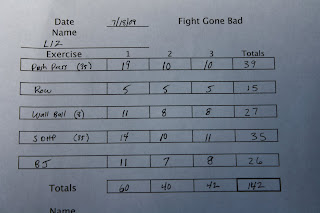 Date 7/15/09 Fight Gone Bad
Name
LIZ
Exercise 1 2 3 Totals
Push Press (35) 19 10 10 39
Row 5 5 5 15
Wall Ball (8) 11 8 8 27
SDHP (35) 14 10 11 35
BJ 11 7 8 26
Totals 60 40 42 142
Name